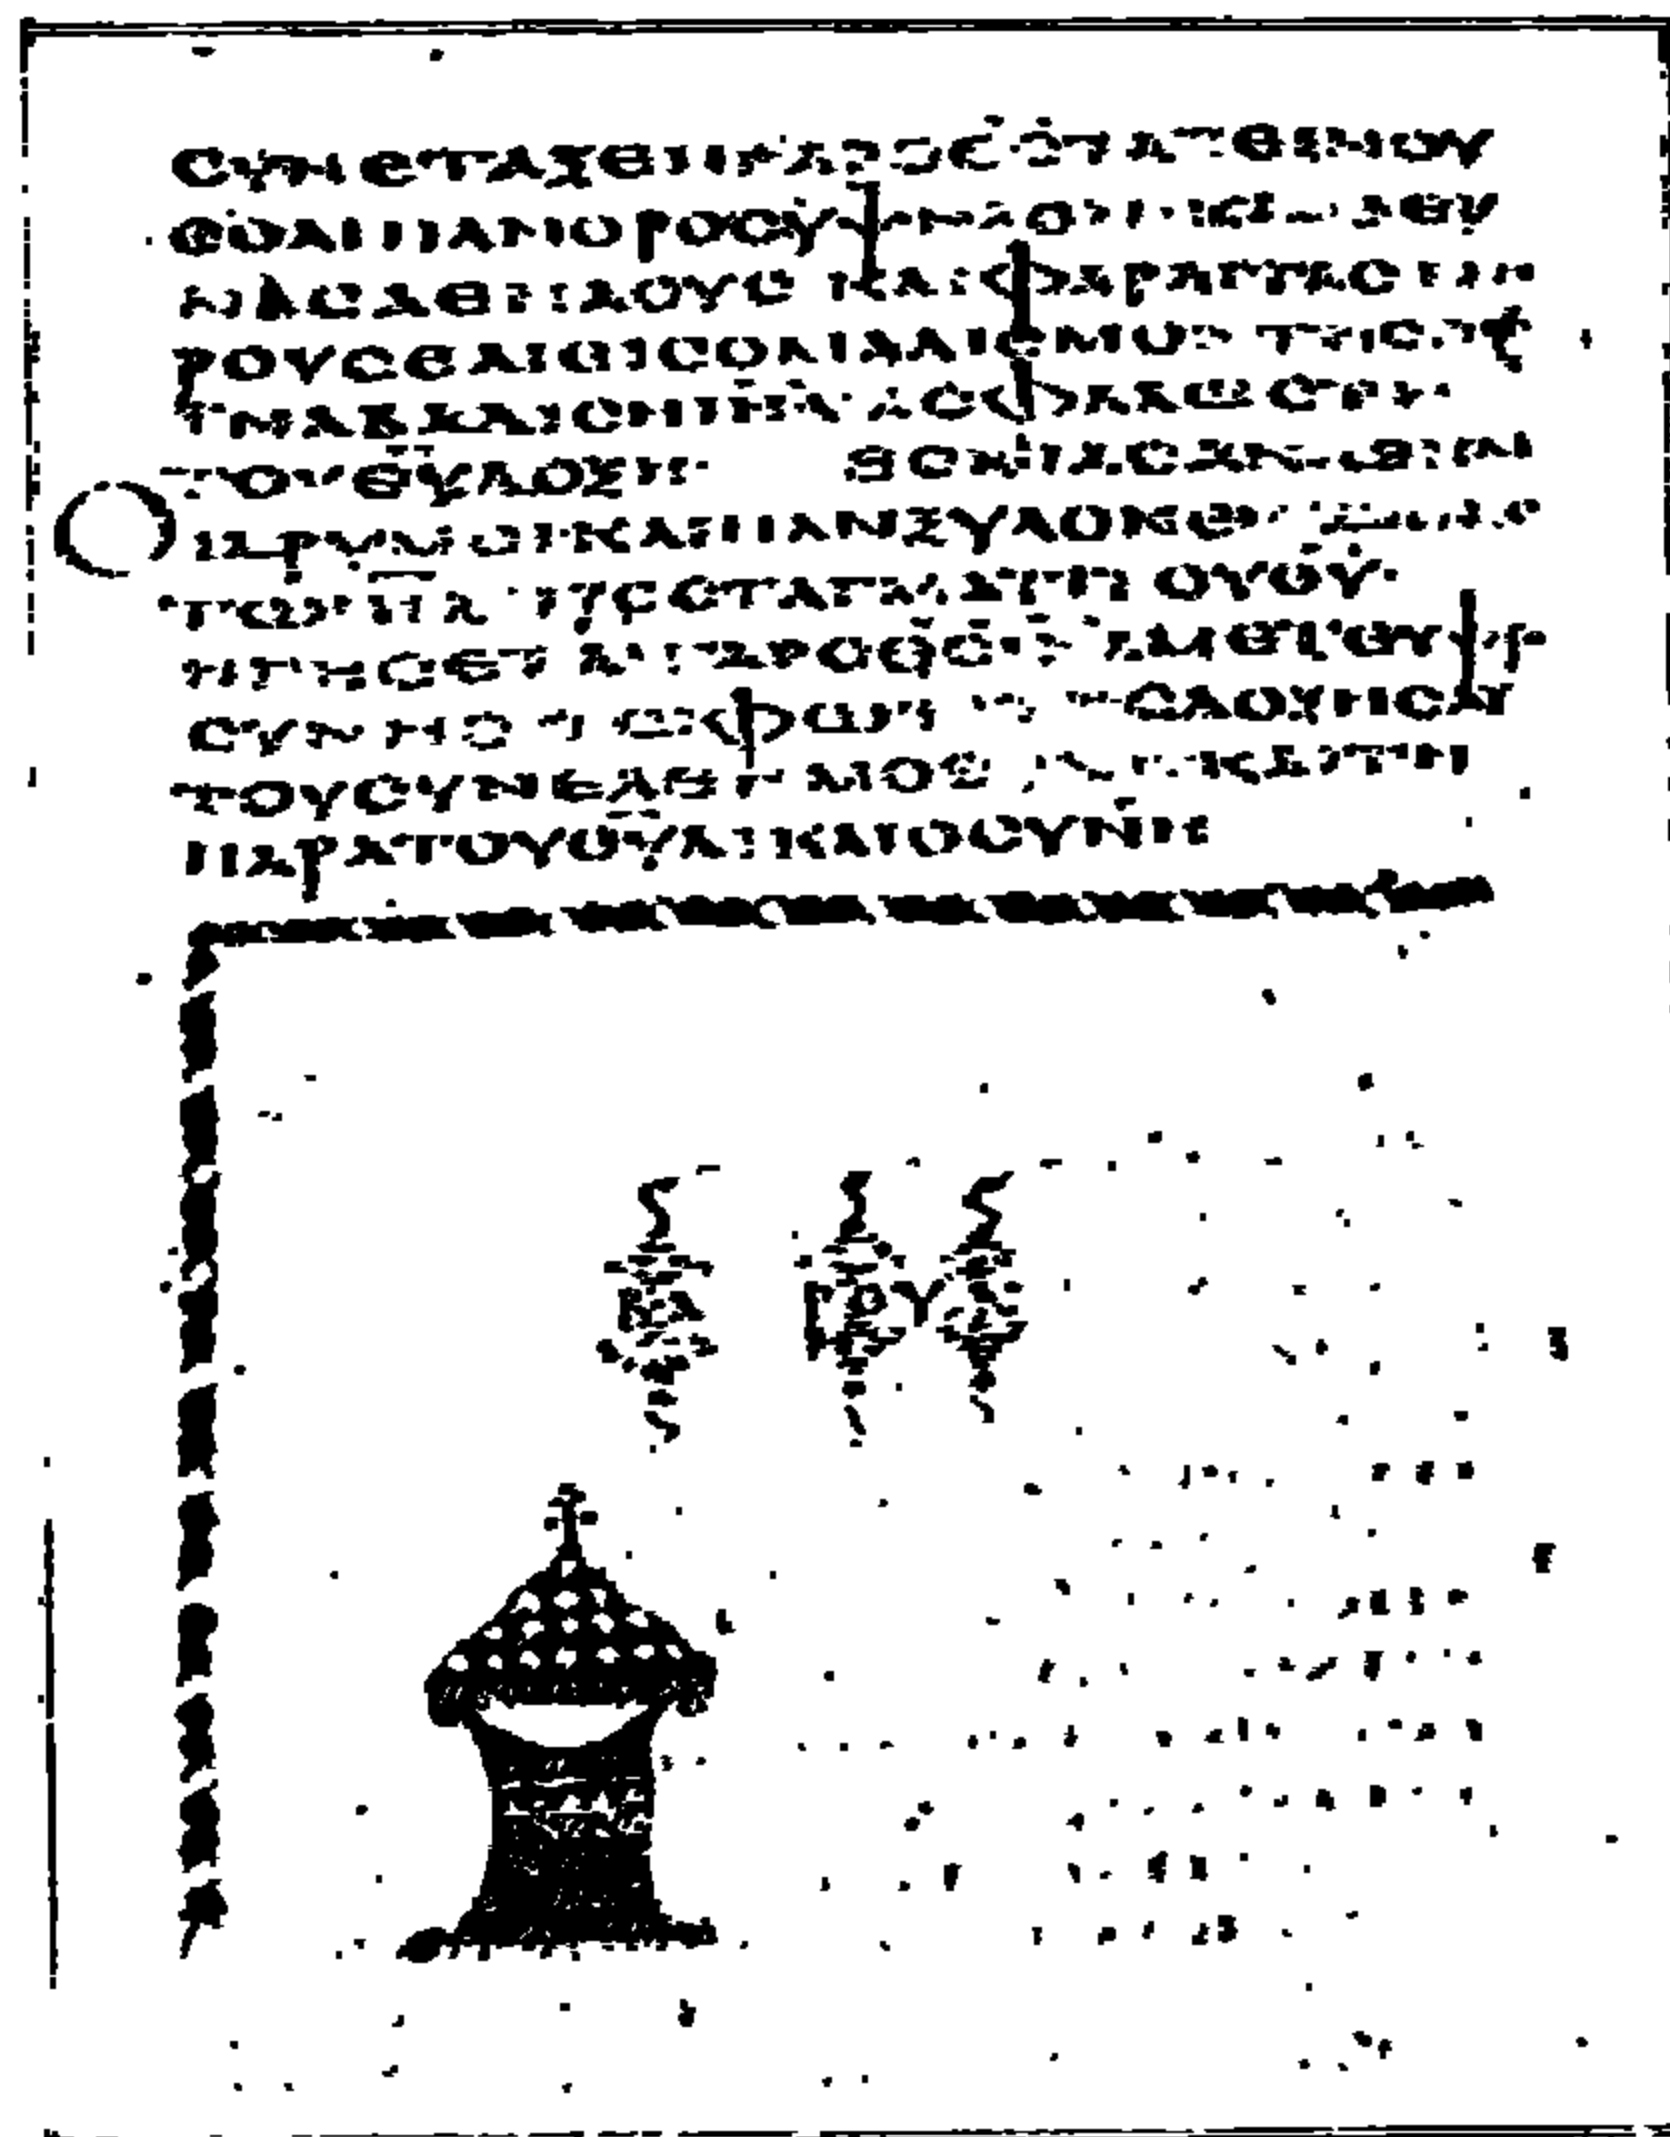 ϹΥΝΕΤΑΞΕΝ ΓΑΡ Ο ΘϹ ΤΑΠΕΙΝΟΥ
ϹΘΑΙ ΠΑΝ ΟΡΟϹ ΥΨΗΛΟΝ
ΑΕΝΝΑΟΥϹ ΚΑΙ ΦΑΡΑΓΓΑϹ ΠΛΗ
ΡΟΥϹΘΑΙ ΕΙϹ ΟΜΑΛΙϹΜΟΝ ΤΗϹ ΓΗϹ
ΙΝΑ ΒΑΔΙϹΗ ΙΗΛ ΑϹΦΑΛΩϹ ΤΗ
ΤΟΥ ΘΥ ΔΟΞΗ ΕϹΚΙΑϹΑΝ
ΟΙ ΔΡΥΜΟΙ ΚΑΙ ΠΑΝ ΞΥΛΟΝ
ΤΩ ΙΗΛ ΠΡΟϹΤΑΓΜΑΤΙ ΤΟΥ ΘΥ
ΗΓΗϹΕΤΑΙ ΓΑΡ Ο ΘϹ ΜΕΤ ΕΥΦΡΟ
ϹΥΝΗϹ ΤΩ ΦΩΤΙ ΤΗϹ ΔΟΞΗϹ ΑΥ
ΤΟΥ ϹΥΝ ΕΛΕΗΜΟϹΥΝΗ ΚΑΙ ΤΗ
ΠΑΡΑ ΤΟΥ ΘΥ ΔΙΚΑΙΟϹΥΝΗ
ΒΑΡΟΥΧ